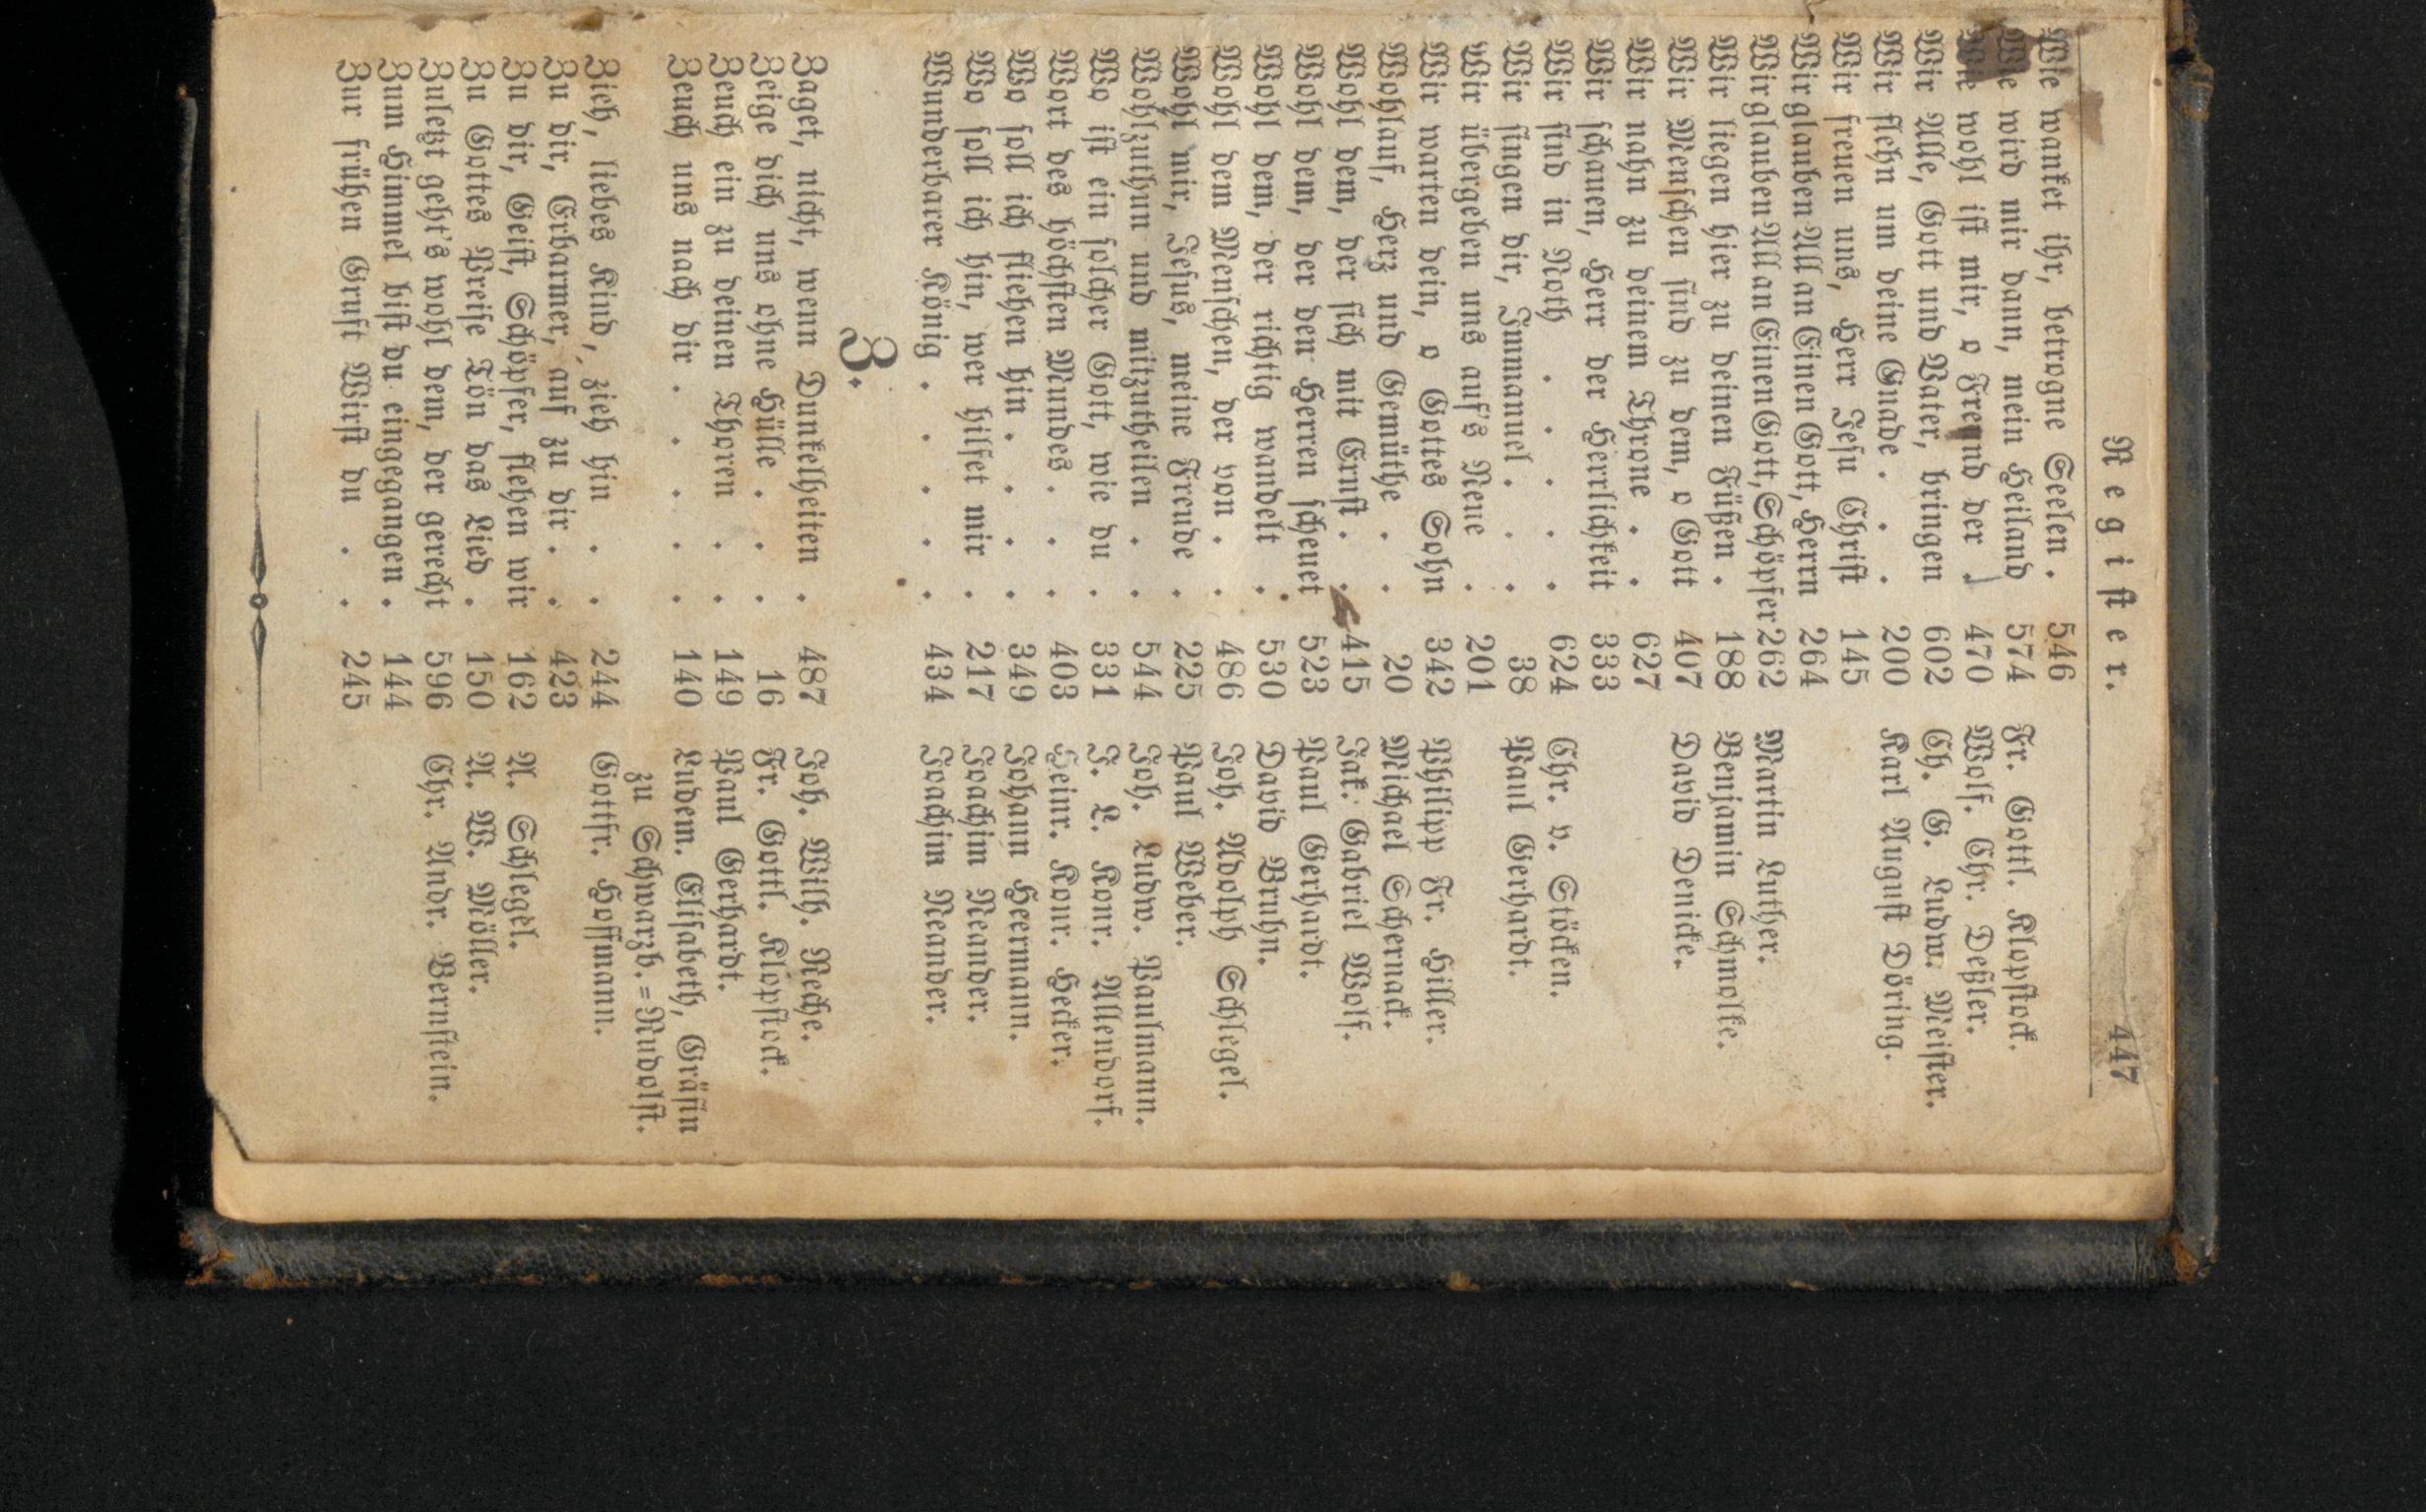 Register. 447
Wie wanket ihr, betrogne Seelen . 546
Wie wird mir dann, mein Heiland 574 Fr. Gottl. Klopstock.
Wie wohl ist mir, o Freund der 470 Wolf. Chr. Deßler.
Wir Alle, Gott und Vater, bringen 602 Ch. G. Ludw. Meister.
Wir flehn um deine Gnade . . . 200 Karl August Döring.
Wir freuen uns, Herr Jesu Christ 145
Wir glauben All an Einen Gott, Herrn 264
Wir glauben All an Einen Gott, Schöpfer 262 Martin Luther.
Wir liegen hier zu deinen Füßen . 188 Benjamin Schmolke.
Wir Menschen sind zu dem, o Gott 407 David Denicke.
Wir nahn zu deinem Throne . . 627
Wir schauen, Herr der Herrlichkeit 333
Wir sind in Noth . . . . . 624 Chr. v. Stöcken.
Wir singen dir, Immanuel . . . 38 Paul Gerhardt.
Wir übergeben uns aufs Neue . 201
Wir warten dein, o Gottes Sohn 342 Philipp Fr. Hiller.
Wohlauf, Herz und Gemüthe . . 20 Michael Schernack.
Wohl dem, der sich mit Ernst . . 415 Jak. Gabriel Wolf.
Wohl dem, der den Herren scheuet 523 Paul Gerhardt.
Wohl dem, der richtig wandelt . 530 David Bruhn.
Wohl dem Menschen, der von . . 486 Joh. Adolph Schlegel.
Wohl mir, Jesus, meine Freude . 225 Paul Weber.
Wohlzuthun und mitzutheilen . . 544 Joh. Ludw. Paulmann.
Wo ist ein solcher Gott, wie du . 331 J. L. Konr. Allendorf.
Wort des höchsten Mundes . . . 403 Heinr. Konr. Hecker.
Wo soll ich fliehen hin . . . . 349 Johann Heermann.
Wo soll ich hin, wer hilfet mir . 217 Joachim Neander.
Wunderbarer König . . . . . 434 Joachim Neander.
Z.
Zaget, nicht, wenn Dunkelheiten . 487 Joh. Wilh. Reche.
Zeige dich uns ohne Hülle . . . 16 Fr. Gottl. Klopstock.
Zeuch ein zu deinen Thoren . . 149 Paul Gerhardt.
Zeuch uns nach dir . . . . . 140 Ludem. Elisabeth, Gräfin
zu Schwarzb.=Rudolst.
Zieh, liebes Kind, zieh hin . . 244 Gottfr. Hoffmann.
Zu dir, Erbarmer, auf zu dir . . 423
Zu dir, Geist, Schöpfer, flehen wir 162 A. Schlegel.
Zu Gottes Preise Tön das Lied . 150 A. W. Möller.
Zuletzt geht's wohl dem, der gerecht 596 Chr. Andr. Bernstein.
Zum Himmel bist du eingegangen . 144
Zur frühen Gruft Wirst du . . 245